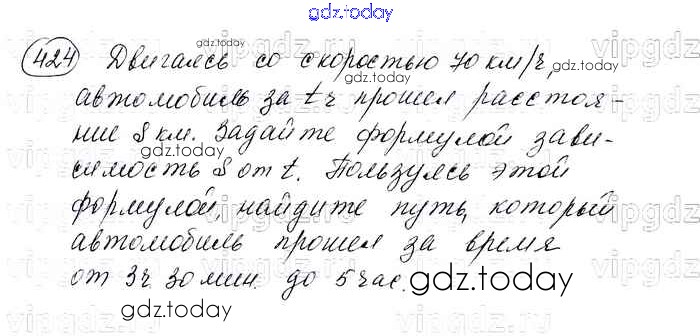 gdz.today
424 Двигаясь со скоростью 70 км/ч,
gdz.today
gdz.today
автомобиль за t ч прошел расстоя-
ние S км. Задайте формулой зави-
gdz.today
симость S от t. Пользуясь этой
gdz.today
формулой, найдите путь, который
gdz.today
автомобиль прошел за время
от 3ч 30 мин. до 5 час.
gdz.today
gdz.today
vipgdz